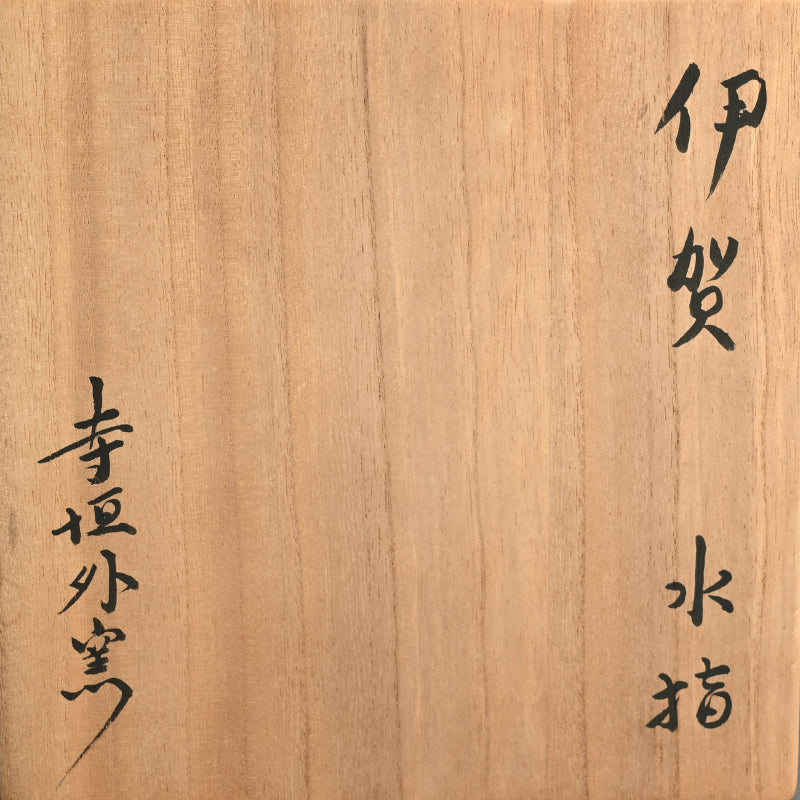 伊賀 水指
寺垣外窯